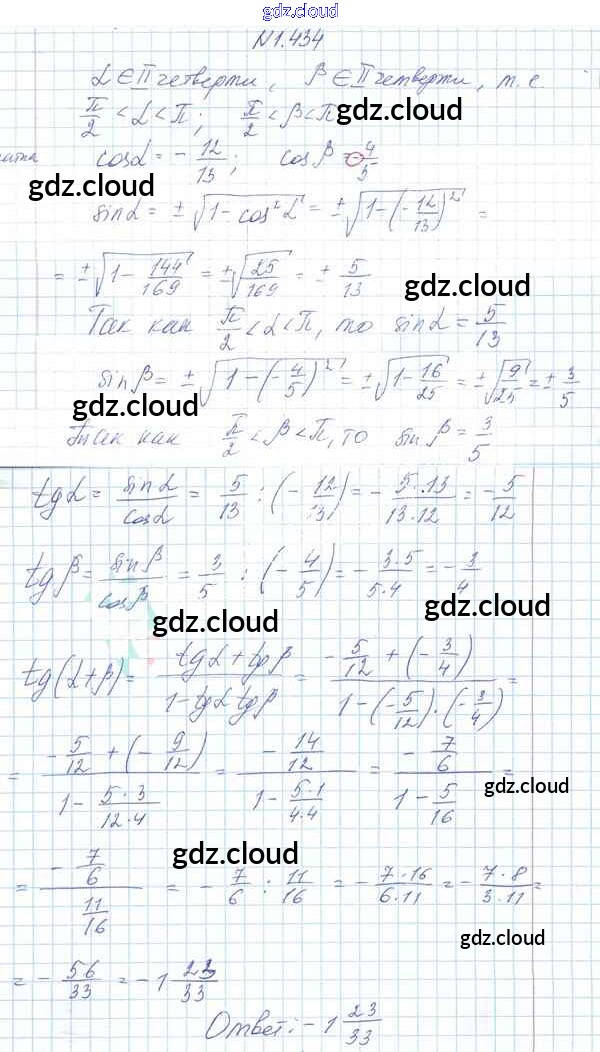 gdz.cloud
N1.434
α ∈ II четверти, β ∈ II четверти, т. е.
π/2 < α < π; π/2 < β < π gdz.cloud
cosα = - 12/13; cosβ = - 4/5
gdz.cloud
sinα = ±√(1 - cos²α) = ±√(1 - (-12/13)²) =
= ±√(1 - 144/169) = ±√(25/169) = ± 5/13
gdz.cloud
Так как π/2 < α < π, то sinα = 5/13
sinβ = ±√(1 - (-4/5)²) = ±√(1 - 16/25) = ±√(9/25) = ± 3/5
gdz.cloud
Так как π/2 < β < π, то sinβ = 3/5
tgα = sinα/cosα = 5/13 : (- 12/13) = - 5·13/13·12 = - 5/12
tgβ = sinβ/cosβ = 3/5 : (- 4/5) = - 3·5/5·4 = - 3/4
gdz.cloud
gdz.cloud
tg(α+β) = (tgα + tgβ)/(1 - tgα tgβ) = (- 5/12 + (- 3/4))/(1 - (- 5/12)·(- 3/4)) =
= (- 5/12 + (- 9/12))/(1 - 5·3/12·4) = (- 14/12)/(1 - 5·1/4·4) = (- 7/6)/(1 - 5/16) =
gdz.cloud
gdz.cloud
= (- 7/6)/(11/16) = - 7/6 : 11/16 = - 7·16/6·11 = - 7·8/3·11 =
gdz.cloud
= - 56/33 = - 1 23/33
Ответ: - 1 23/33